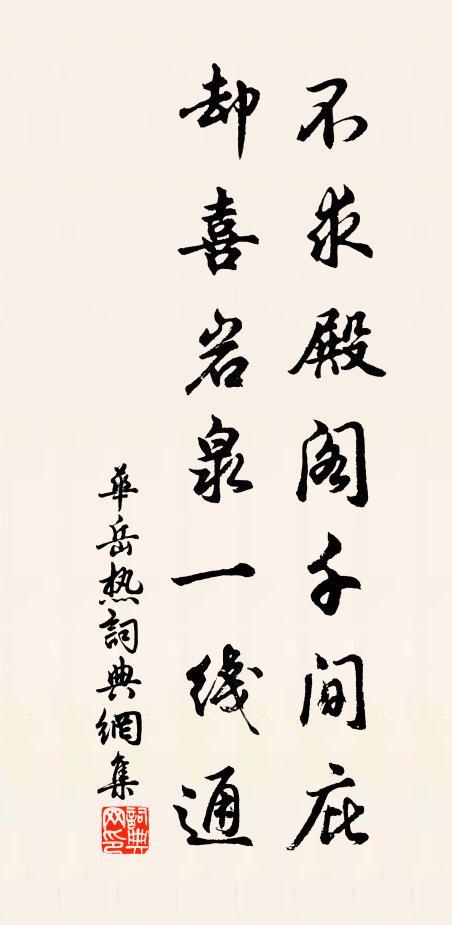 不求殿阁千间庇
却喜岩泉一线通
華岳热詞典網集
詞典网印